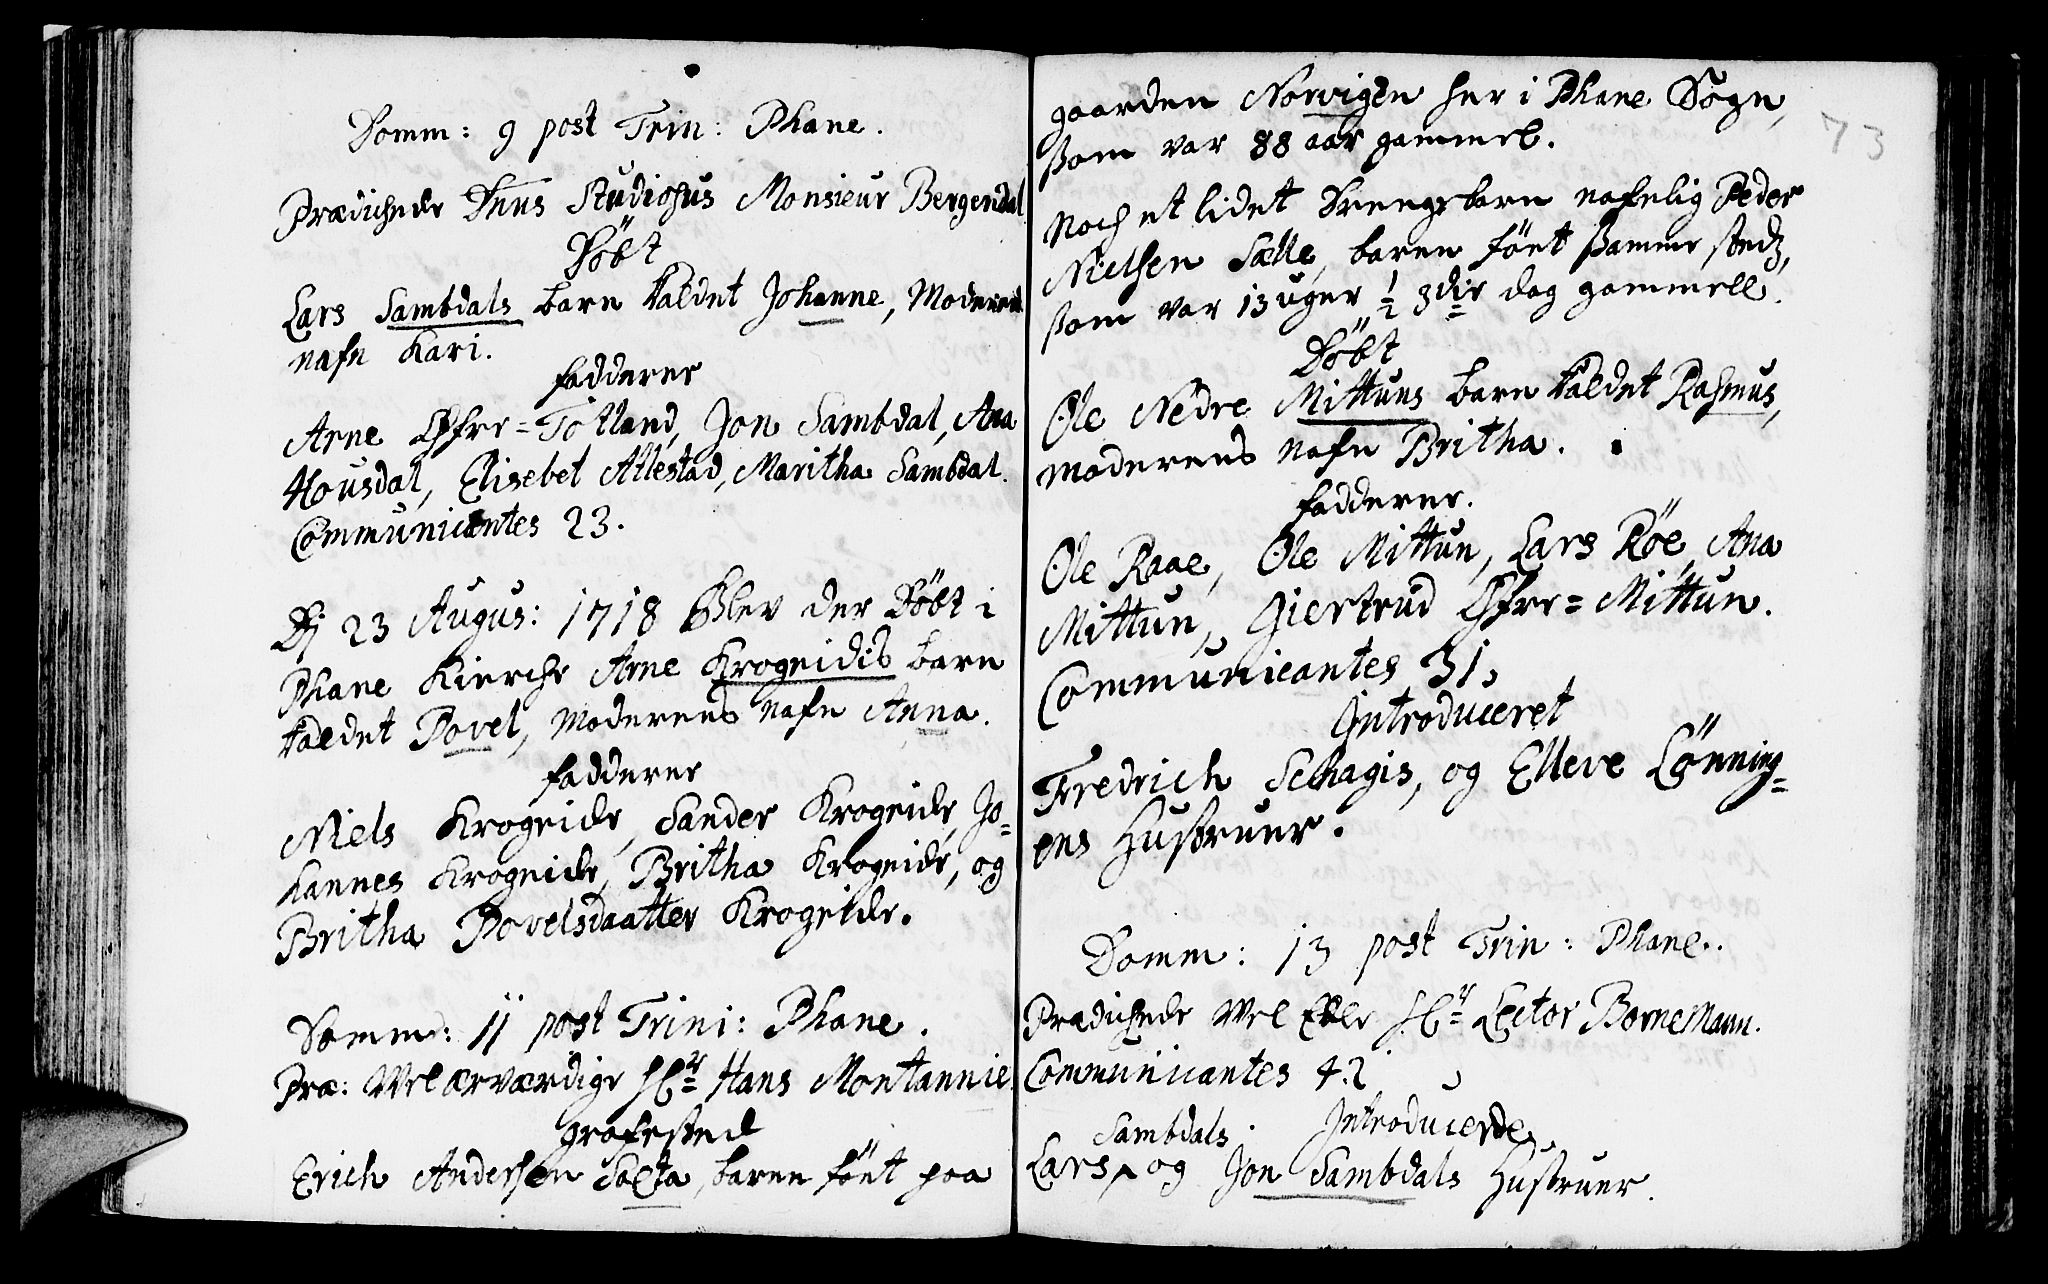 Domm: 9 post Trin: Phane.
Prædichede Dnus Studiosus Monsieur Bergendal
Döbt
Lars Sambdals barn kaldet Johanne, Moderens
nafn Kari.
fadderne
Arne Öfre=Totland, Jon Sambdal, Ana
Housdal, Elisebet Allestad, Maritha Sambdal.
Communicantes 23.
Dj 23 Augus: 1718 Blev der Döbt i
Phane Kierche Arne Krogeidis barn
kaldet Povel, Moderens nafn Anna.
fadderne
Niels Krogeide, Sander Krogeide, Jo=
hannes Krogeide, Britha Krogeide, og
Britha Povelsdaatter Krogeide.
Domm: 11 post Trini: Phane.
Præ: Velærværdige Hr Hans Montannie
grafested
Erich Andersen baaren föet paa
73
gaarden Norvigen her i Phane Sogn,
som var 88 aar gammel.
Noch et lidet Drengebarn nafnlig Peder
Nielsen Sælle, baaren föet samme steds,
som var 13 uger 1/2 3die dag gammell.
Döbt
Ole Nedre Mittuns barn kaldet Rasmus,
moderens nafn Britha.
fadderne.
Ole Raae, Ole Mittun, Lars Röe, Ana
Mittun, Giertrud Öfre=Mittun.
Communicantes 31,
Introduceret
Fredrich Schagis, og Elleve Lönning=
ens Hustruer.
Domm: 13 post Trin: Phane.
Prædichede Vel Edle Hr Lector Bornemann.
Communicantes 42
Introducerde
Lars Sambdals og Jon Sambdals Hustruer.